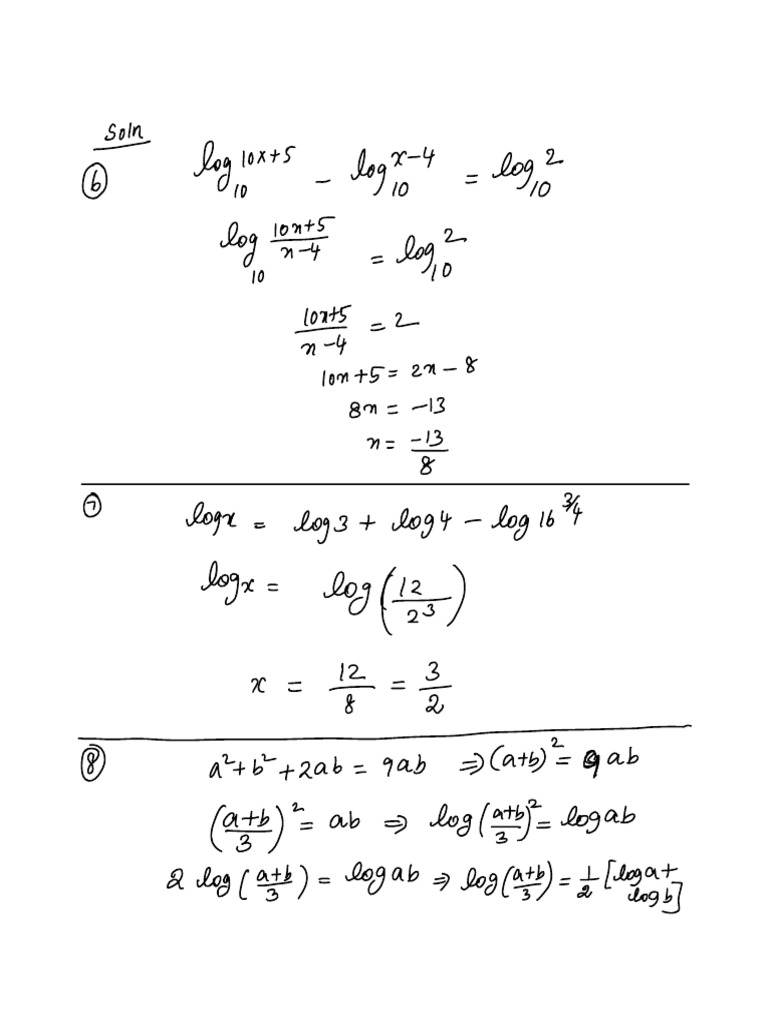 Soln
⑥ log₁₀ 10x+5 − log₁₀ x−4 = log₁₀ 2
log₁₀ (10x+5)/(x−4) = log₁₀ 2
(10x+5)/(x−4) = 2
10x+5 = 2x−8
8x = −13
x = −13/8
⑦ logx = log3 + log4 − log16^(3/4)
logx = log(12/2³)
x = 12/8 = 3/2
⑧ a²+b²+2ab = 9ab ⇒ (a+b)² = 9ab
((a+b)/3)² = ab ⇒ log((a+b)/3)² = logab
2 log((a+b)/3) = logab ⇒ log((a+b)/3) = 1/2 [loga+
logb]